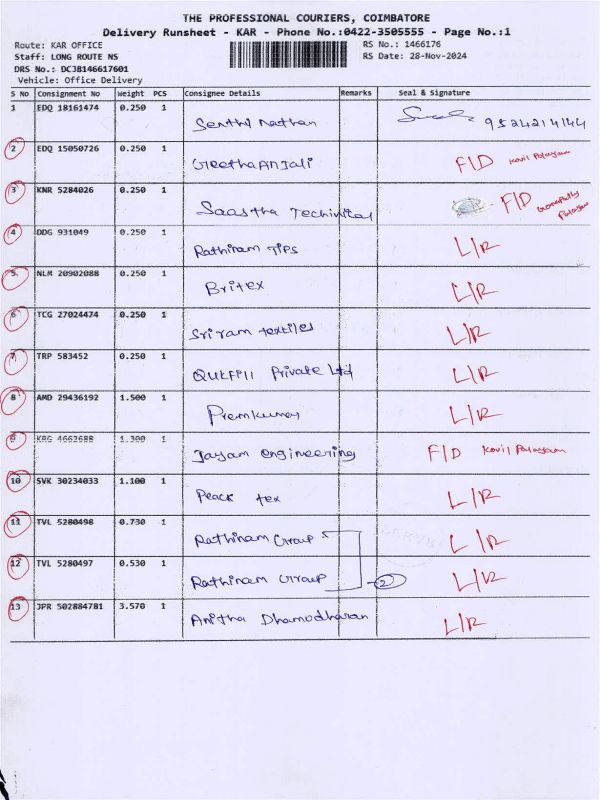 THE PROFESSIONAL COURIERS, COIMBATORE
Delivery Runsheet - KAR - Phone No.:0422-3505555 - Page No.:1
Route: KAR OFFICE RS No.: 1466176
Staff: LONG ROUTE NS RS Date: 28-Nov-2024
DRS No.: DCJB146617601
Vehicle: Office Delivery
S No Consignment No Weight PCS Consignee Details Remarks Seal & Signature
1 EDQ 18161474 0.250 1 Senthil Nathan 9524214144
2 EDQ 15050726 0.250 1 GeethaAnjali F/D Kovil Palayam
3 KNR 5284026 0.250 1 Saastha Techinical F/D Palayam
4 DDG 931049 0.250 1 Rathinam TIPS L/R
5 NLM 20902088 0.250 1 Britex L/R
6 TCG 27024474 0.250 1 Sri ram textiles L/R
7 TRP 583452 0.250 1 Qukfill Private Ltd L/R
8 AMD 29436192 1.500 1 Premkumar L/R
9 KRG 4662688 1.300 1 Jayam engineering F/D Kovil Palayam
10 SVK 30234033 1.100 1 Peack tex L/R
11 TVL 5280498 0.730 1 Rathinam Group L/R
12 TVL 5280497 0.530 1 Rathinam Group 2 L/R
13 JPR 502884781 3.570 1 Anitha Dhamodharan L/R